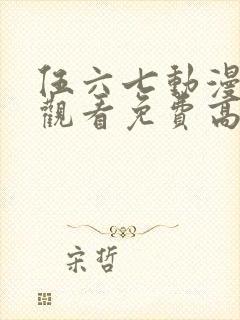 伍六七動漫
觀看免費高
宋哲